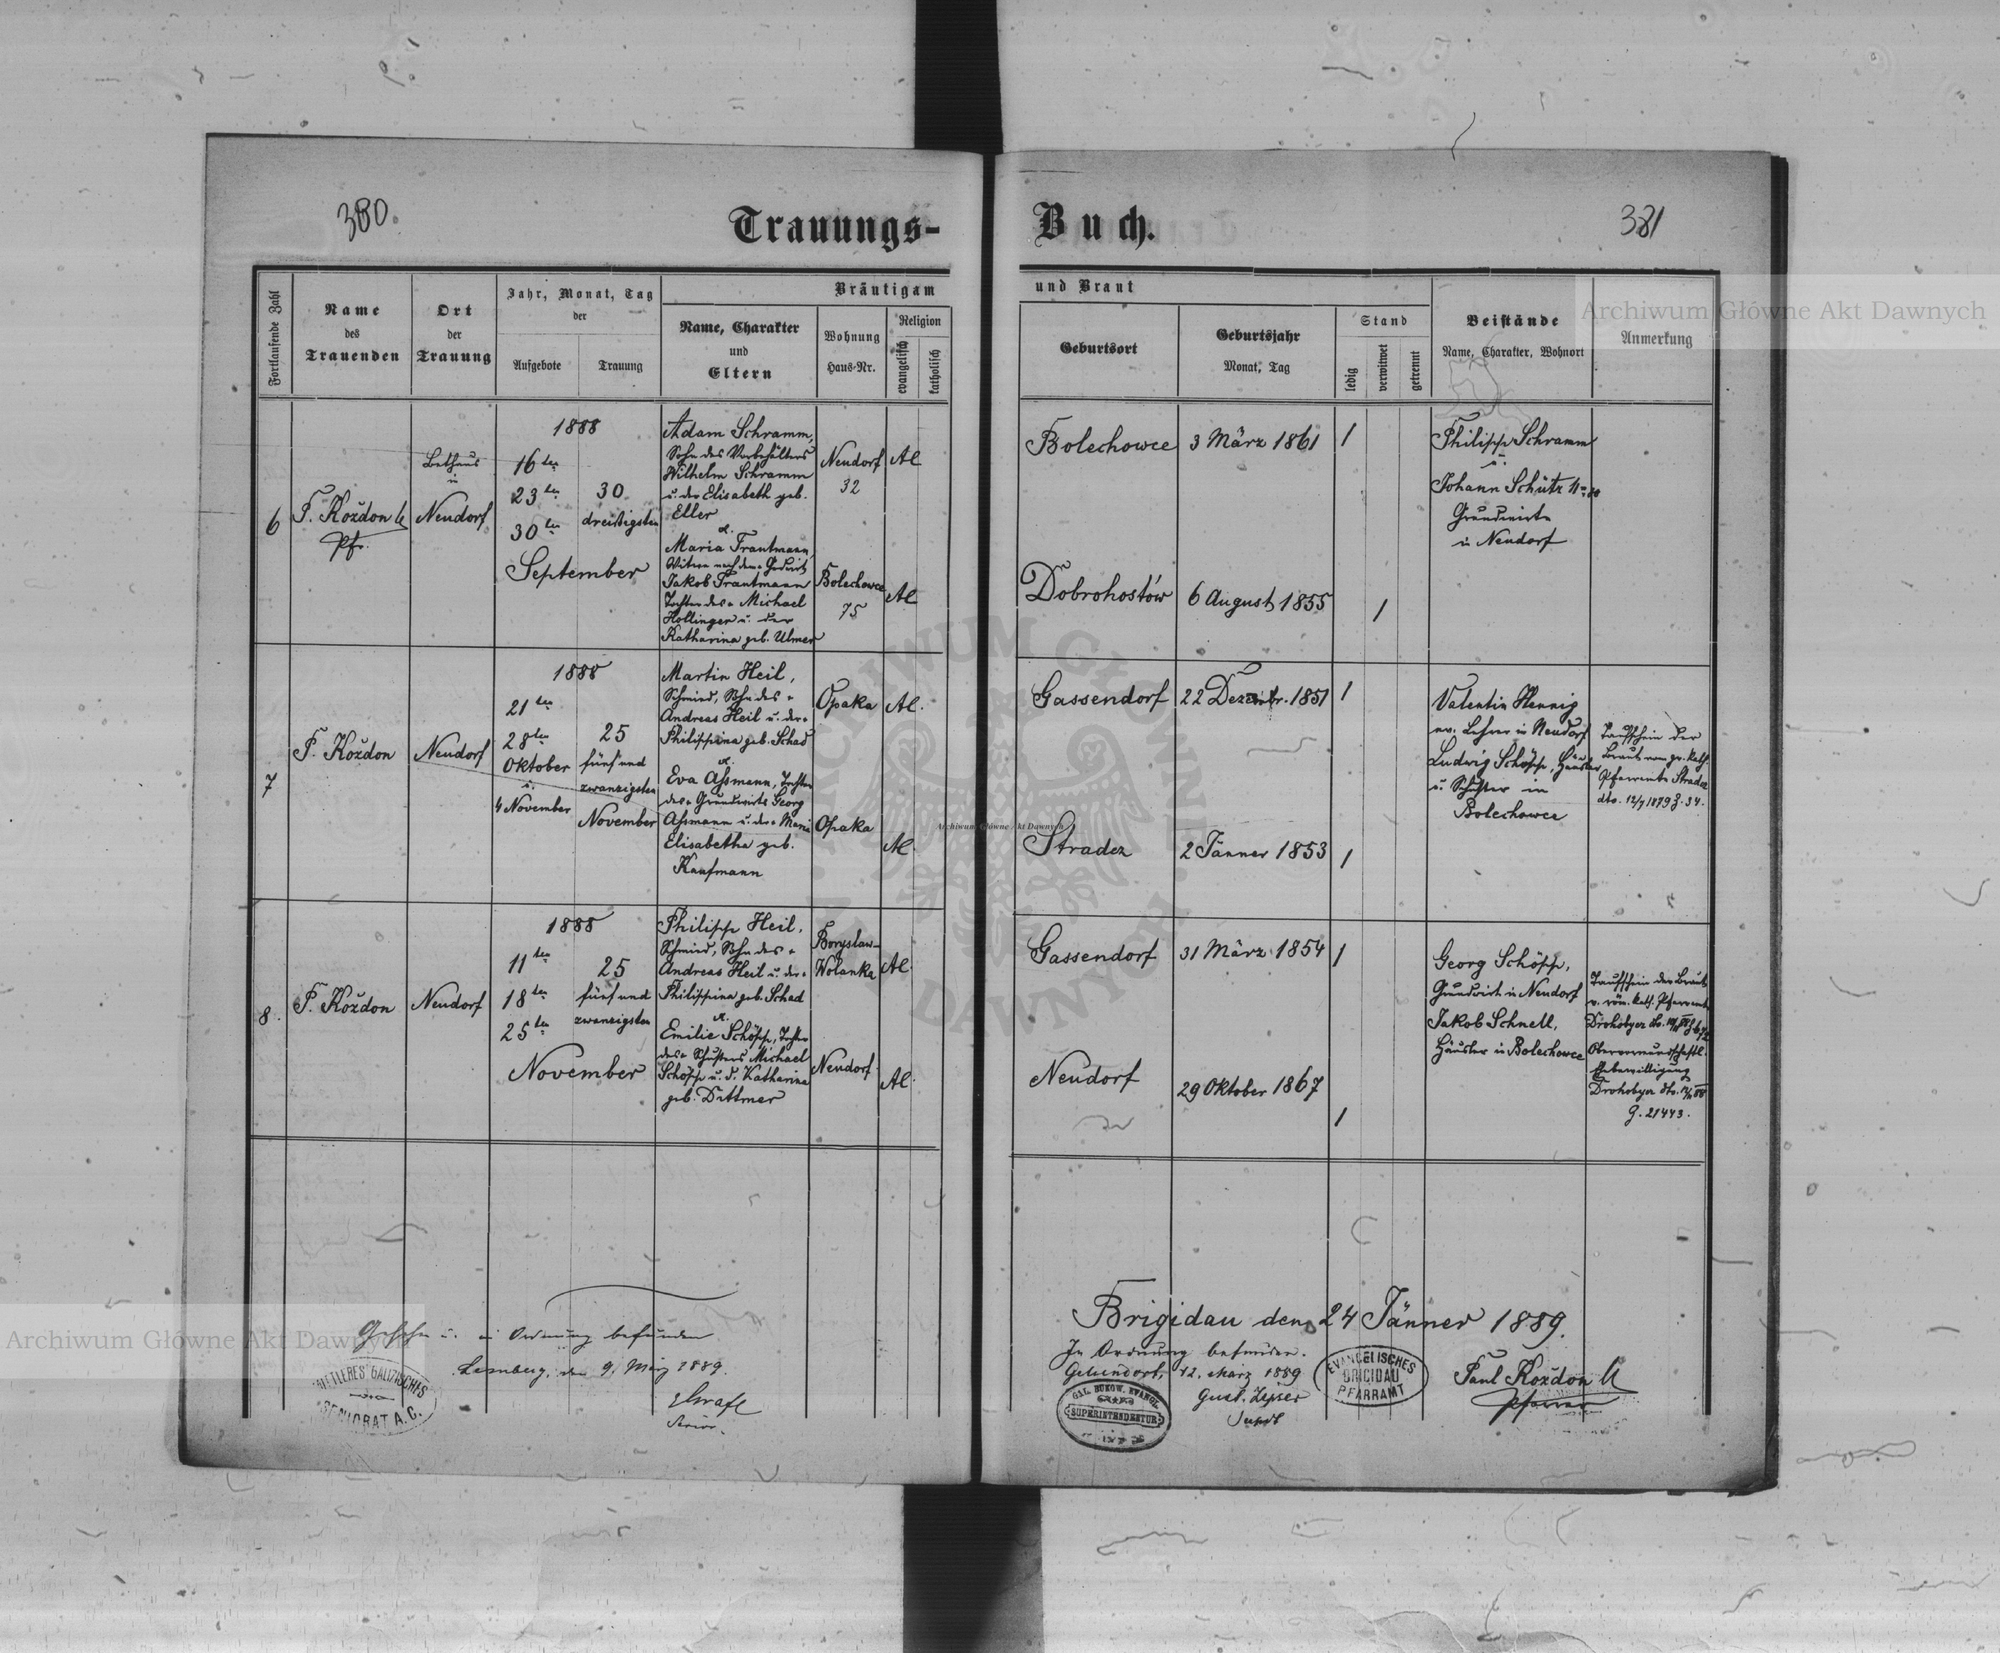 380.
Trauungs-
Buch.
381
Fortlaufende Zahl
Name
des
Trauenden
Ort
der
Trauung
Jahr, Monat, Tag
der
Aufgebote
Trauung
Bräutigam
Name, Charakter
und
Eltern
Wohnung
Haus-Nr.
Religion
evangelisch
katholisch
und Braut
Geburtsort
Geburtsjahr
Monat, Tag
Stand
ledig
verwitwet
getrennt
Beistände
Name, Charakter, Wohnort
Anmerkung
6
F. Koždon
Pfr.
Bethaus
in
Neudorf
1888
16ten
23ten
30ten
September
30
dreißigsten
Adam Schramm,
Sohn des Vorbehälters
Wilhelm Schramm
u. der Elisabeth geb.
Eller
u.
Maria Trautmann,
Witwe nach dem
Jakob Trautmann
Tochter des Michael
Hollinger u. der
Katharina geb. Ulmer
Neudorf
32
AC
Bolechowce
75
AC
Bolechowce
3 März 1861
1
Dobrohostów
6 August 1855
1
Philipp Schramm
u.
Johann Schütz
Grundwirte
in Neudorf
7
F. Koždon
Neudorf
1888
21ten
28ten
Oktober
u.
4 November
25
fünf und
zwanzigsten
November
Martin Heil,
Schmied, Sohn des
Andreas Heil u. der
Philippina geb. Schad
u.
Eva Aßmann, Tochter
des Grundwirts Georg
Aßmann u. der Maria
Elisabetha geb.
Kaufmann
Opaka
AC.
Opaka
AC.
Gassendorf
22 Dezembr. 1851
1
Stradcz
2 Jänner 1853
1
Valentin Hennig
ev. Lehrer in Neudorf
Ludwig Schöpp, Häusler
u. Schuster in
Bolechowce
Taufschein der
Braut vom gr. kath.
Pfarramte Stradcz
dto. 12/7 1879 Z. 34.
8.
F. Koždon
Neudorf
1888
11ten
18ten
25ten
November
25
fünf und
zwanzigsten
Philipp Heil,
Schmied, Sohn des
Andreas Heil u. der
Philippina geb. Schad
u.
Emilie Schöpp, Tochter
des Schusters Michael
Schöpp u. d. Katharina
geb. Dittmer
Boryslaw-
Wolanka
AC.
Neudorf.
AC.
Gassendorf
31 März 1854
1
Neudorf
29 Oktober 1867
1
Georg Schöpp,
Grundwirt in Neudorf
Jakob Schnell,
Häusler in Bolechowce
Taufschein der Braut
v. röm. kath. Pfarramte
Drohobycz dto.
Obervormundschaftl.
Ehebewilligung
Drohobycz dto.
Z. 21443.
Gesehen u. in Ordnung befunden
Lemberg, den 9. März 1889.
Senior.
MITTLERES GALIZISCHES
SENIORAT A.C.
Brigidau den 24 Jänner 1889.
In Ordnung befunden.
Gelsendorf, 12. März 1889
Gust. Zipser
Supdt
GAL. BUKOW. EVANGL.
SUPERINTENDENTUR
EVANGELISCHES
BRIGIDAU
PFARRAMT
Paul Koždon
Pfarrer
Archiwum Główne Akt Dawnych
Archiwum Główne Akt Dawnych
Archiwum Główne Akt Dawnych
ARCHIWUM GŁÓWNE AKT DAWNYCH